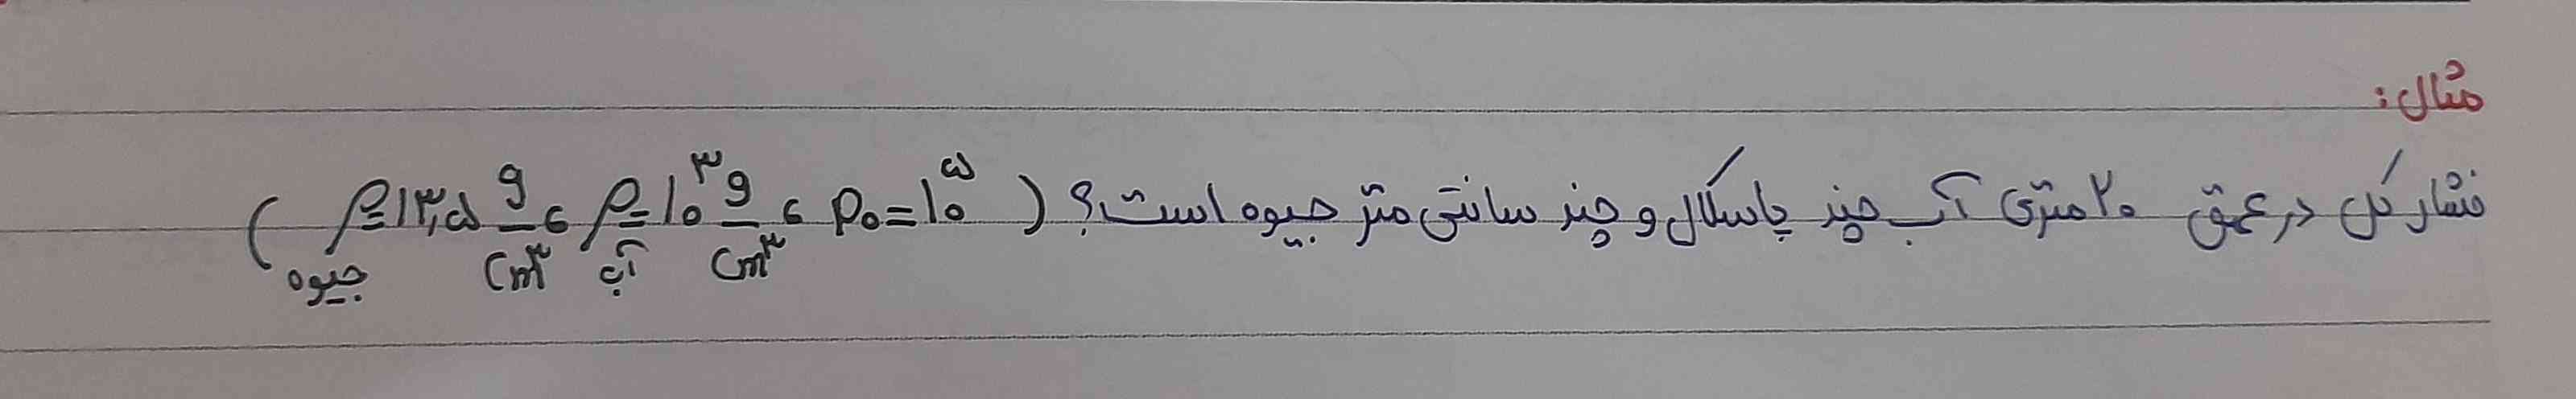 مثال:
فشار کل در عمق ۲۰ متری آب چند پاسکال و چند سانتی متر جیوه است؟ ( P₀=۱۰^۵ ، ρ آب=۱۰^۳ g/cm^۳ ، ρ جیوه=۱۳,۵ g/cm^۳ )